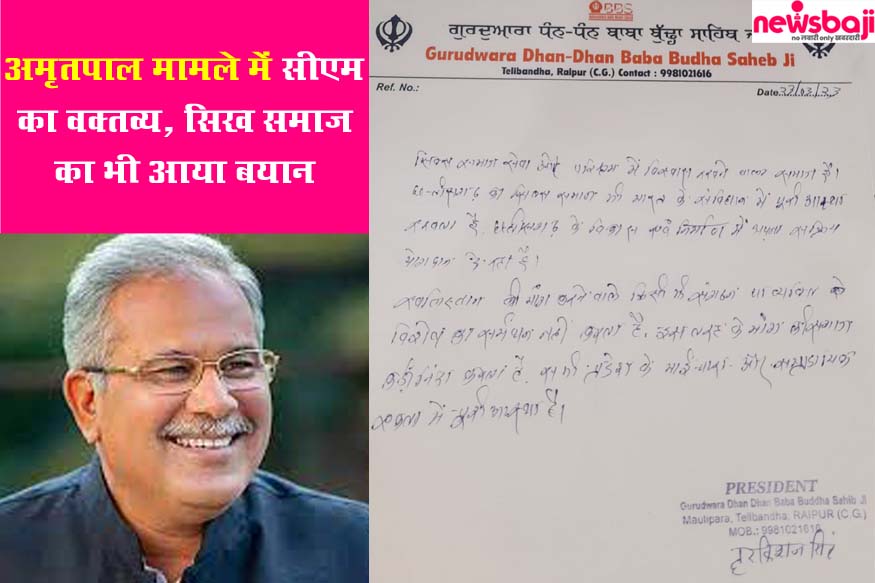 अमृतपाल मामले में सीएम
का वक्तव्य, सिख समाज
का भी आया बयान
BBS
ਗੁਰਦੁਆਰਾ ਧੰਨ-ਧੰਨ ਬਾਬਾ ਬੁੱਢਾ ਸਾਹਿਬ ਜ
newsbaji
no लबारी only खबरदारी
Gurudwara Dhan-Dhan Baba Budha Saheb Ji
Telibandha, Raipur (C.G.) Contact : 9981021616
Ref. No.:
Date
सिक्ख समाज सेवा और में विश्वास रखने वाला समाज है।
छत्तीसगढ़ का सिक्ख समाज भी भारत के संविधान में पूरी आस्था
रखता है. छत्तीसगढ़ के विकास एवं निर्माण में अपना सक्रिय
योगदान दे रहा है।
खालिस्तान की मांग करने वाले किसी भी संगठन या व्यक्ति
का समर्थन नहीं करता है. इस तरह के मांग
कड़ी निंदा करता है. प्रदेश के भाई-चारा और
एकता में पूरी आस्था है।
PRESIDENT
Gurudwara Dhan Dhan Baba Buddha Sahib Ji
Maulipara, Telibandha, RAIPUR (C.G.)
MOB.: 9981021616